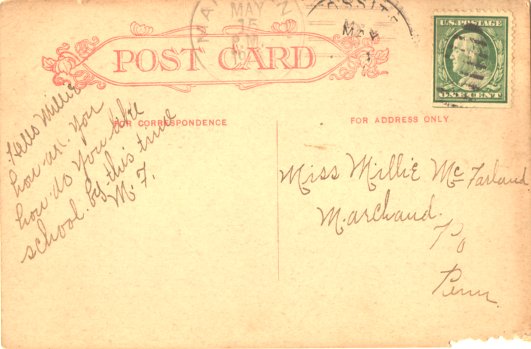 MAY
15
PM
MAY
U.S. POSTAGE
ONE CENT
POST CARD
FOR CORRESPONDENCE
FOR ADDRESS ONLY
Hello Millie
how are you
how do you like
school by this time
M. F.
Miss Millie McFarland
Marchand
Po
Penn.